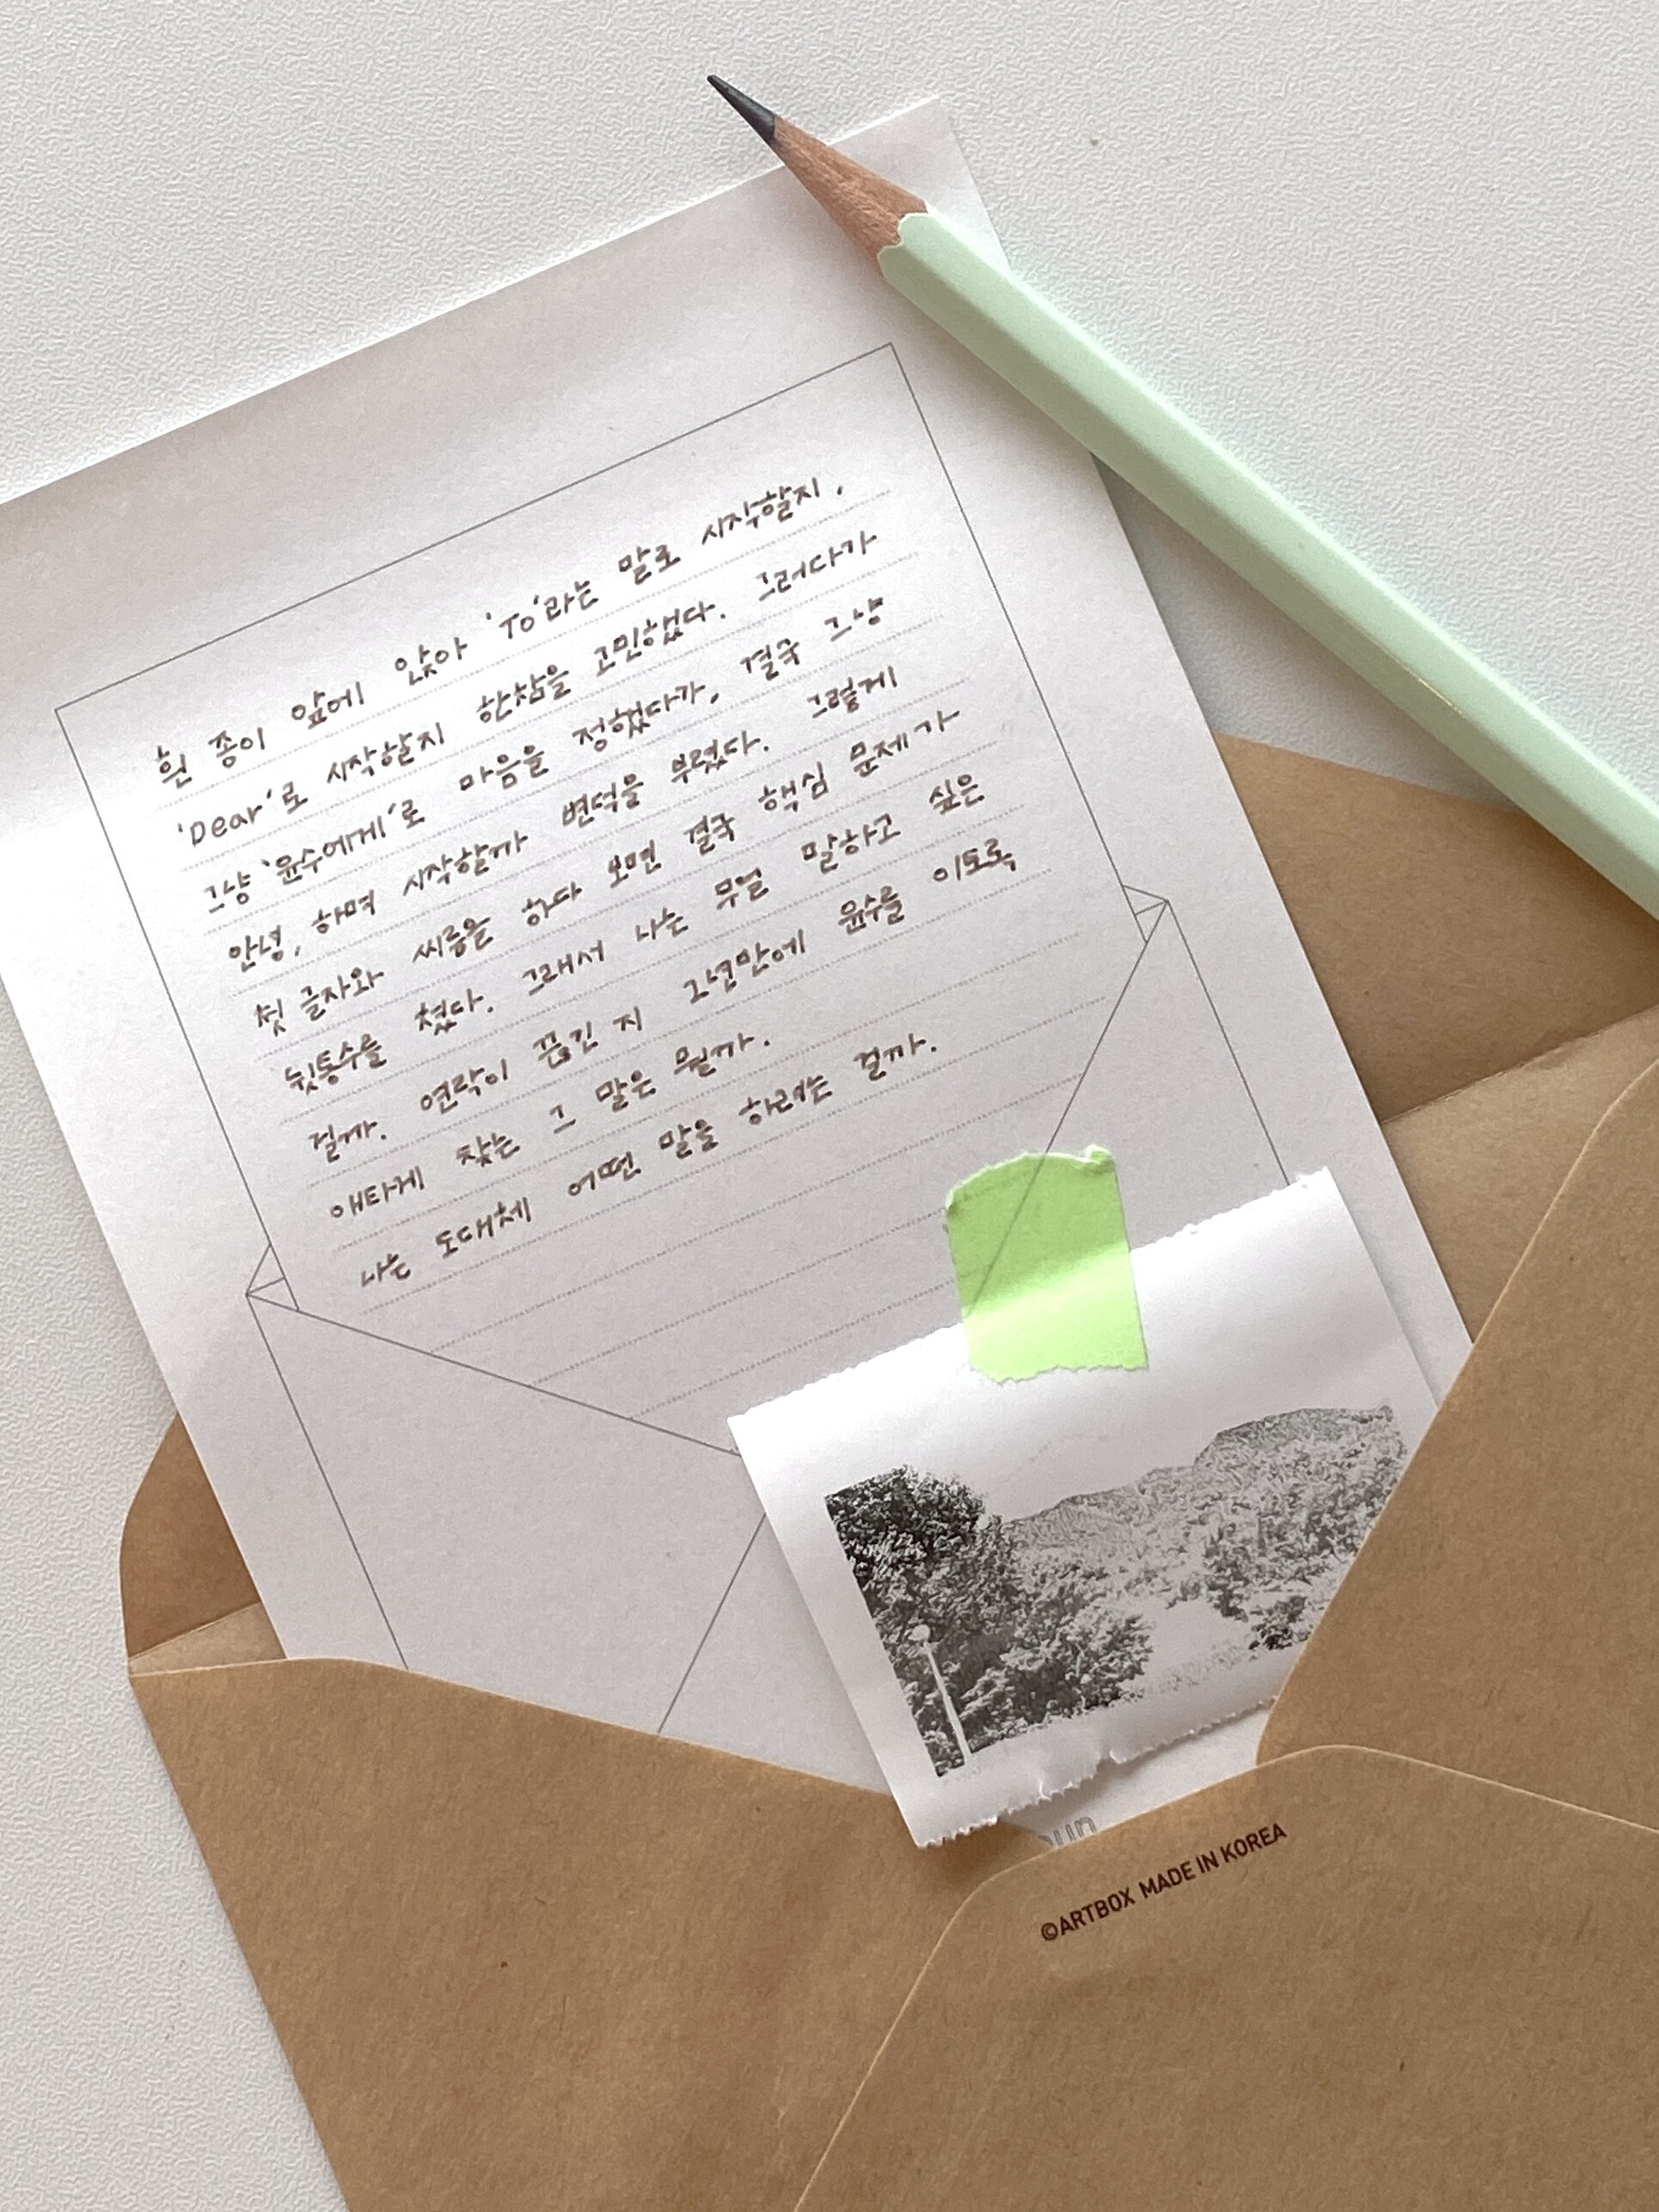 흰 종이 앞에 앉아 'To'라는 말로 시작할지,
'Dear'로 시작할지 한참을 고민했다. 그러다가
그냥 '윤수에게'로 마음을 정했다가, 결국 그냥
안녕, 하며 시작할까 변덕을 부렸다. 그렇게
첫 글자와 씨름을 하다 보면 결국 핵심 문제가
뒷통수를 쳤다. 그래서 나는 무얼 말하고 싶은
걸까. 연락이 끊긴 지 2년만에 윤수를 이토록
애타게 찾는 그 말은 뭘까.
나는 도대체 어떤 말을 하려는 걸까.
©ARTBOX MADE IN KOREA